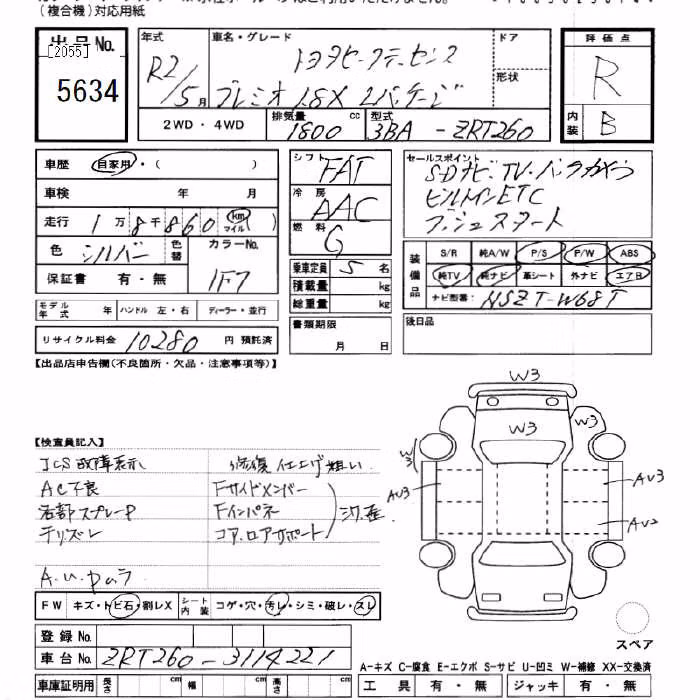 (複合機)対応用紙
出品No.
[2055]
5634
年式
R2/5月
車名・グレード
プレミオ 1.8X Lパッケージ
ドア
形状
評価点
R
内装
B
2WD・4WD
排気量
1800
cc
型式
3BA-ZRT260
車歴
自家用・( )
車検 年 月
走行 1万8千860 km マイル ( )
色 シルバー 色替 カラーNo. 1F7
保証書 有・無
モデル年式 年 ハンドル 左・右 ディーラー・並行
リサイクル料金 10280 円 預託済
シフト FAT
冷房 AAC
燃料 G
乗車定員 5 名
積載量 kg
総重量 kg
書類期限
月 日
セールスポイント
SDナビ・TV・バックカメラ
ビルトインETC
プッシュスタート
装備品
S/R 純A/W P/S P/W ABS
純TV 純ナビ 革シート 外ナビ エアB
ナビ型番: NSZT-W68T
後日品
【出品店申告欄(不良箇所・欠品・注意事項等)】
【検査員記入】
ICS故障表示
AC不良
右部スプレーP
テリズレ
A.U.Pカラ
修復仕上げ粗い
Fサイドメンバー
Fインパネ
コア.ロアサポート
W3
W3
W3
W3
AU3
AU3
AU2
スペア
FW キズ・トビ石・割レX
シート内装 コゲ・穴・汚レ・シミ・破レ・スレ
登録No.
車台No. ZRT260-3114221
車庫証明用 長さ cm 幅 cm 高さ cm
A-キズ C-腐食 E-エクボ S-サビ U-凹ミ W-補修 XX-交換済
工具 有・無 ジャッキ 有・無